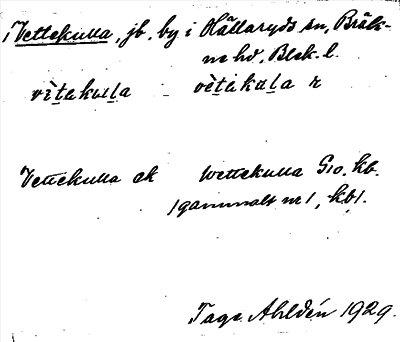 Vettekulla, jb. by i Hällaryds sn, Bräk-
ne hd, Blek. l.
vètakulla – vètakulla r
Vettekulla ek Wettekulla Gio. kb.
/gammalt n/, kb/.
Tage Ahldén 1929.